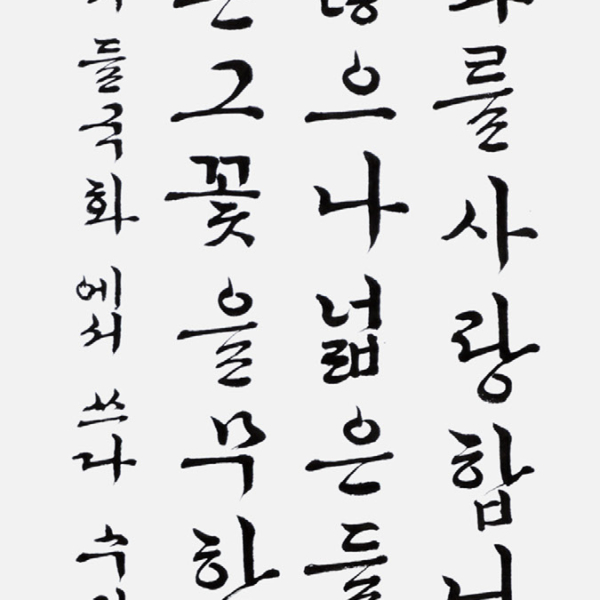 를 사랑합니
으나 넓은 들
그 꽃을 무한
들국화에서 쓰다 수